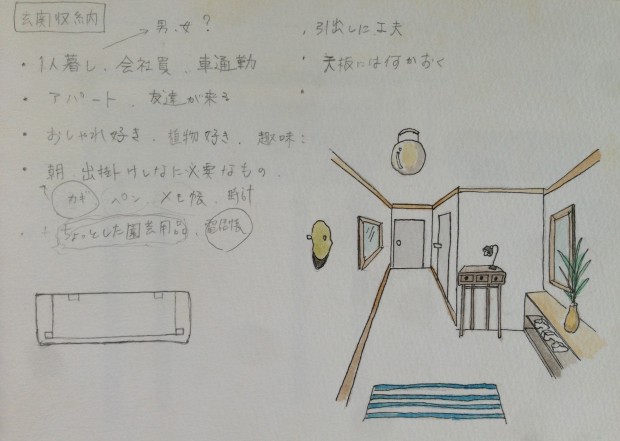 玄関収納
男、女？
・1人暮し、会社員、車通勤
・アパート、友達が来る
・おしゃれ好き、植物好き、趣味:
・朝、出掛けしなに必要なもの、
カギ ペン、メモ帳、時計
ちょっとした園芸用品、電話帳
、引出しに工夫
・天板には何かおく
・